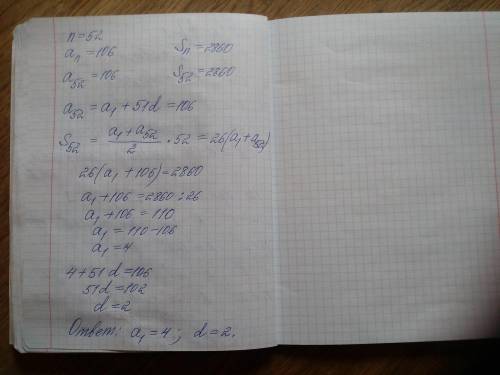 n=52
aₙ=106 Sₙ=2860
a₅₂=106 S₅₂=2860
a₅₂=a₁+51d=106
S₅₂ = (a₁+a₅₂)/2 · 52 = 26(a₁+a₅₂)
26(a₁+106)=2860
a₁+106=2860:26
a₁+106=110
a₁=110-106
a₁=4
4+51d=106
51d=102
d=2
Ответ: a₁=4; d=2.